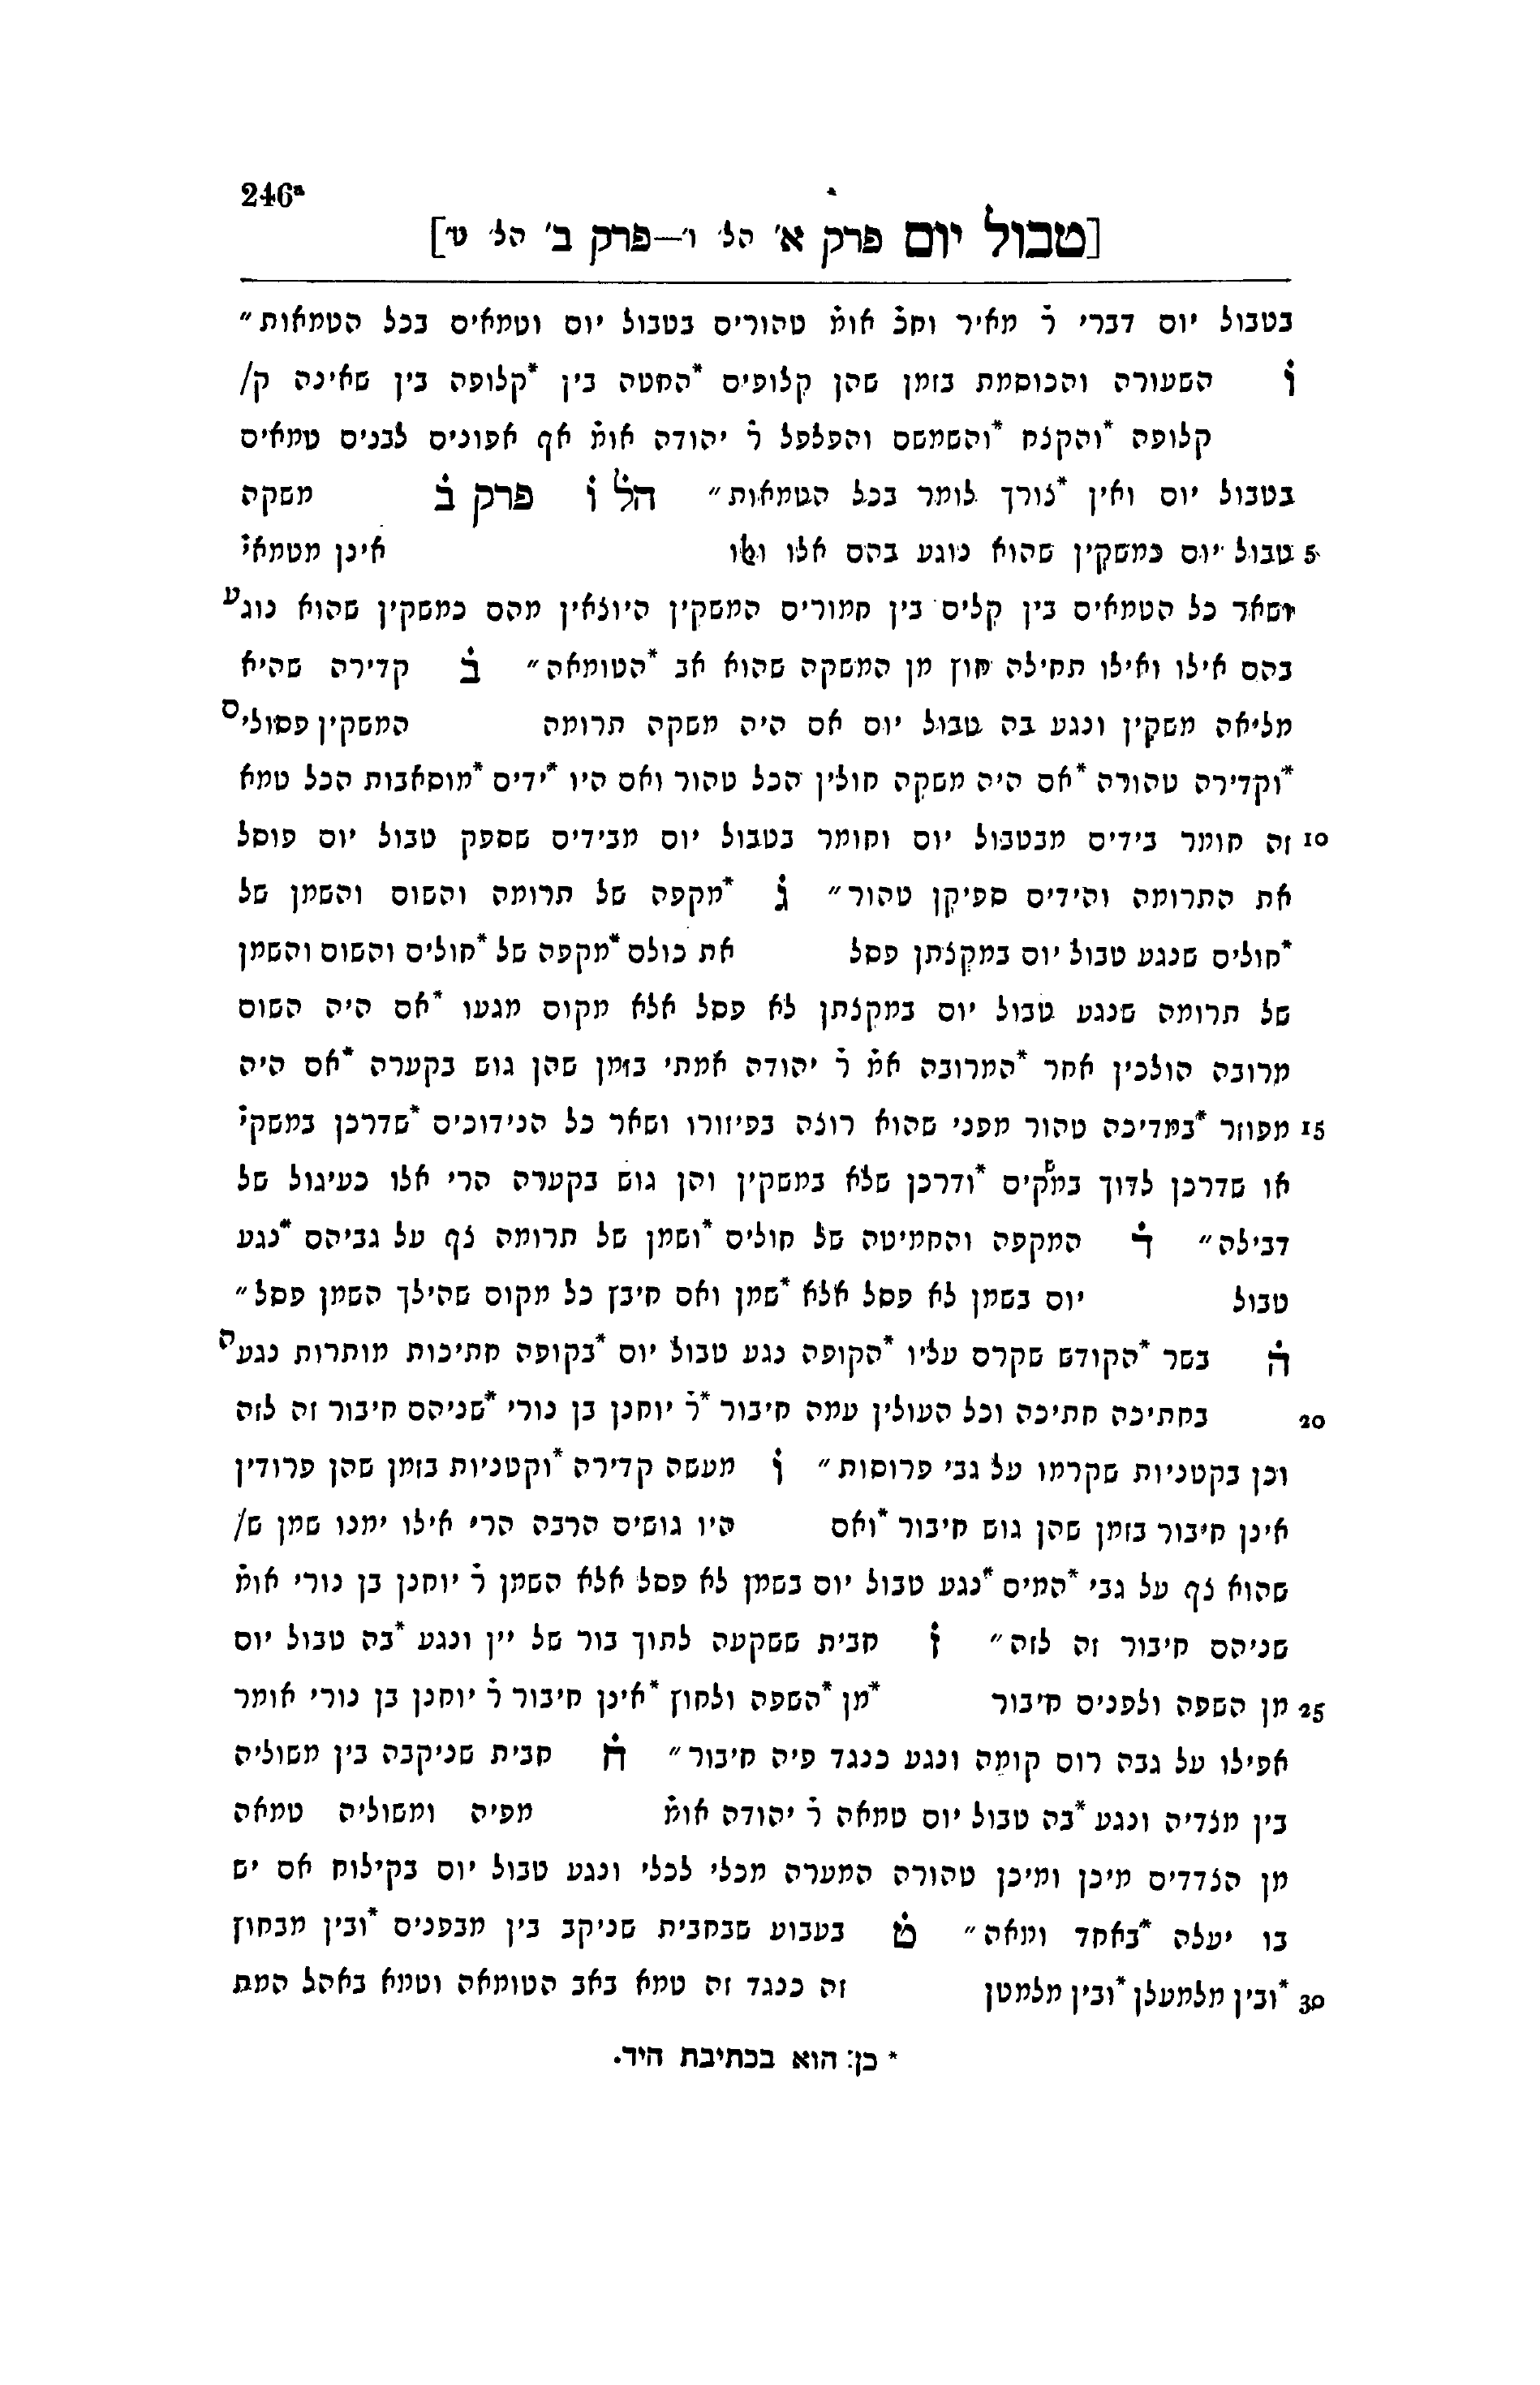 246ᵃ
[טבול יום פרק א׳ הל׳ ו׳—פרק ב׳ הל׳ ט׳]
בטבול יום דברי ר̇ מאיר וחכ̇ אומ̇ טהורים בטבול יום וטמאים בכל הטמאות״
ו̇ השעורה והכוסמת בזמן שהן קלופים *החטה בין *קלופה בין שאינה ק/
קלופה *והקצח *והשמשם והפלפל ר̇ יהודה אומ̇ אף אפונים לבנים טמאים
בטבול יום ואין *צורך לומר בכל הטמאות״ הל̇ ו̇ פרק ב̇ משקה
5 טבול יום כמשקין שהוא נוגע בהם אלו ואלו אינן מטמאי̇
ושאר כל הטמאים בין קלים בין חמורים המשקין היוצאין מהם כמשקין שהוא נוגע
בהם אילו ואילו תחילה חוץ מן המשקה שהוא אב *הטומאה״ ב̇ קדירה שהיא
מליאה משקין ונגע בה טבול יום אם היה משקה תרומה המשקין פסולים
*וקדירה טהורה *אם היה משקה חולין הכל טהור ואם היו *ידים *מוסאבות הכל טמא
10 זה חומר בידים מבטבול יום וחומר בטבול יום מבידים שספק טבול יום פוסל
את התרומה והידים ספיקן טהור״ ג̇ *מקפה של תרומה והשום והשמן של
*חולים שנגע טבול יום במקצתן פסל את כולם *מקפה של *חולים והשום והשמן
של תרומה שנגע טבול יום במקצתן לא פסל אלא מקום מגעו *אם היה השום
מרובה הולכין אחר *המרובה אמ̇ ר̇ יהודה אמתי בזמן שהן גוש בקערה *אם היה
15 מפוזר *במדיכה טהור מפני שהוא רוצה בפיזורו ושאר כל הנידוכים *שדרכן במשקי̇
או שדרכן לדוך במשקים *ודרכן שלא במשקין והן גוש בקערה הרי אלו כעיגול של
דבילה״ ד̇ המקפה והחמיטה של חולים *ושמן של תרומה צף על גביהם *נגע
טבול יום בשמן לא פסל אלא *שמן ואם חיבץ כל מקום שהילך השמן פסל״
ה̇ בשר *הקודש שקרם עליו *הקופה נגע טבול יום *בקופה חתיכות מותרות נגעה
20 בחתיכה חתיכה וכל העולין עמה חיבור *ר̇ יוחנן בן נורי *שניהם חיבור זה לזה
וכן בקטניות שקרמו על גבי פרוסות״ ו̇ מעשה קדירה *וקטניות בזמן שהן פרודין
אינן חיבור בזמן שהן גוש חיבור *ואם היו גושים הרבה הרי אילו ימנו שמן ש/
שהוא צף על גבי *המים *נגע טבול יום בשמן לא פסל אלא השמן ר̇ יוחנן בן נורי אומ̇
שניהם חיבור זה לזה״ ז̇ חבית ששקעה לתוך בור של יין ונגע *בה טבול יום
25 מן השפה ולפנים חיבור *מן *השפה ולחוץ *אינן חיבור ר̇ יוחנן בן נורי אומר
אפילו על גבה רום קומה ונגע כנגד פיה חיבור״ ח̇ חבית שניקבה בין משוליה
בין מצדיה ונגע *בה טבול יום טמאה ר̇ יהודה אומ̇ מפיה ומשוליה טמאה
מן הצדדים מיכן ומיכן טהורה המערה מכלי לכלי ונגע טבול יום בקילוח אם יש
בו יעלה *באחד ומאה״ ט̇ בעבוע שבחבית שניקב בין מבפנים *ובין מבחוץ
30 *ובין מלמעלן *ובין מלמטן זה כנגד זה טמא באב הטומאה וטמא באהל המת
* כן הוא בכתיבת היד.